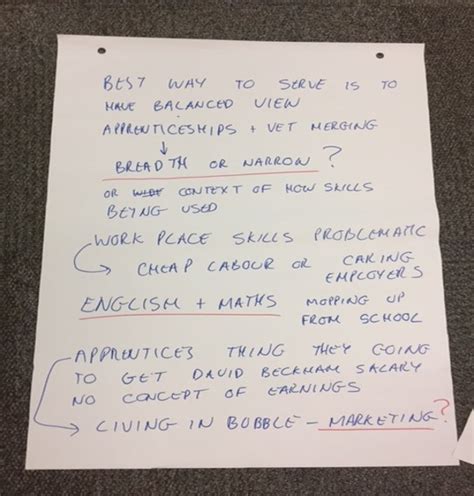 BEST WAY TO SERVE IS TO
HAVE BALANCED VIEW
APPRENTICESHIPS + VET MERGING
↓
BREADTH OR NARROW ?
OR WIDE CONTEXT OF HOW SKILLS
BEING USED
WORK PLACE SKILLS PROBLEMATIC
→ CHEAP LABOUR OR CARING
EMPLOYERS
ENGLISH + MATHS MOPPING UP
FROM SCHOOL
APPRENTICES THING THEY GOING
TO GET DAVID BECKHAM SALARY
NO CONCEPT OF EARNINGS
→ LIVING IN BOBBLE – MARKETING?